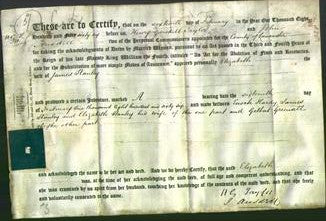 These are to Certify, that on the sixteenth day of January in the Year One Thousand Eight
Hundred and sixty six before us Henry Taylor and John
of the Perpetual Commissioners appointed for the County of
for taking the acknowledgments of Deeds by Married Women, pursuant to an Act passed in the Third and Fourth Years of
the Reign of his late Majesty King William the Fourth, intituled "An Act for the Abolition of Fines and Recoveries,
and for the Substitution of more simple Modes of Assurance," appeared personally Elizabeth the
wife of James Stanley
and produced a certain Indenture, marked A bearing date the sixteenth day
of January one thousand eight hundred and sixty six and made between James
Stanley and Elizabeth Stanley his wife of the one part and
of the other part
and acknowledged the same to be her act and deed. And we do hereby Certify, that the said Elizabeth
was, at the time of her acknowledging the said deed, of full age and competent understanding, and that
she was examined by us apart from her husband, touching her knowledge of the contents of the said deed, and that she freely
and voluntarily consented to the same.
Hy Taylor